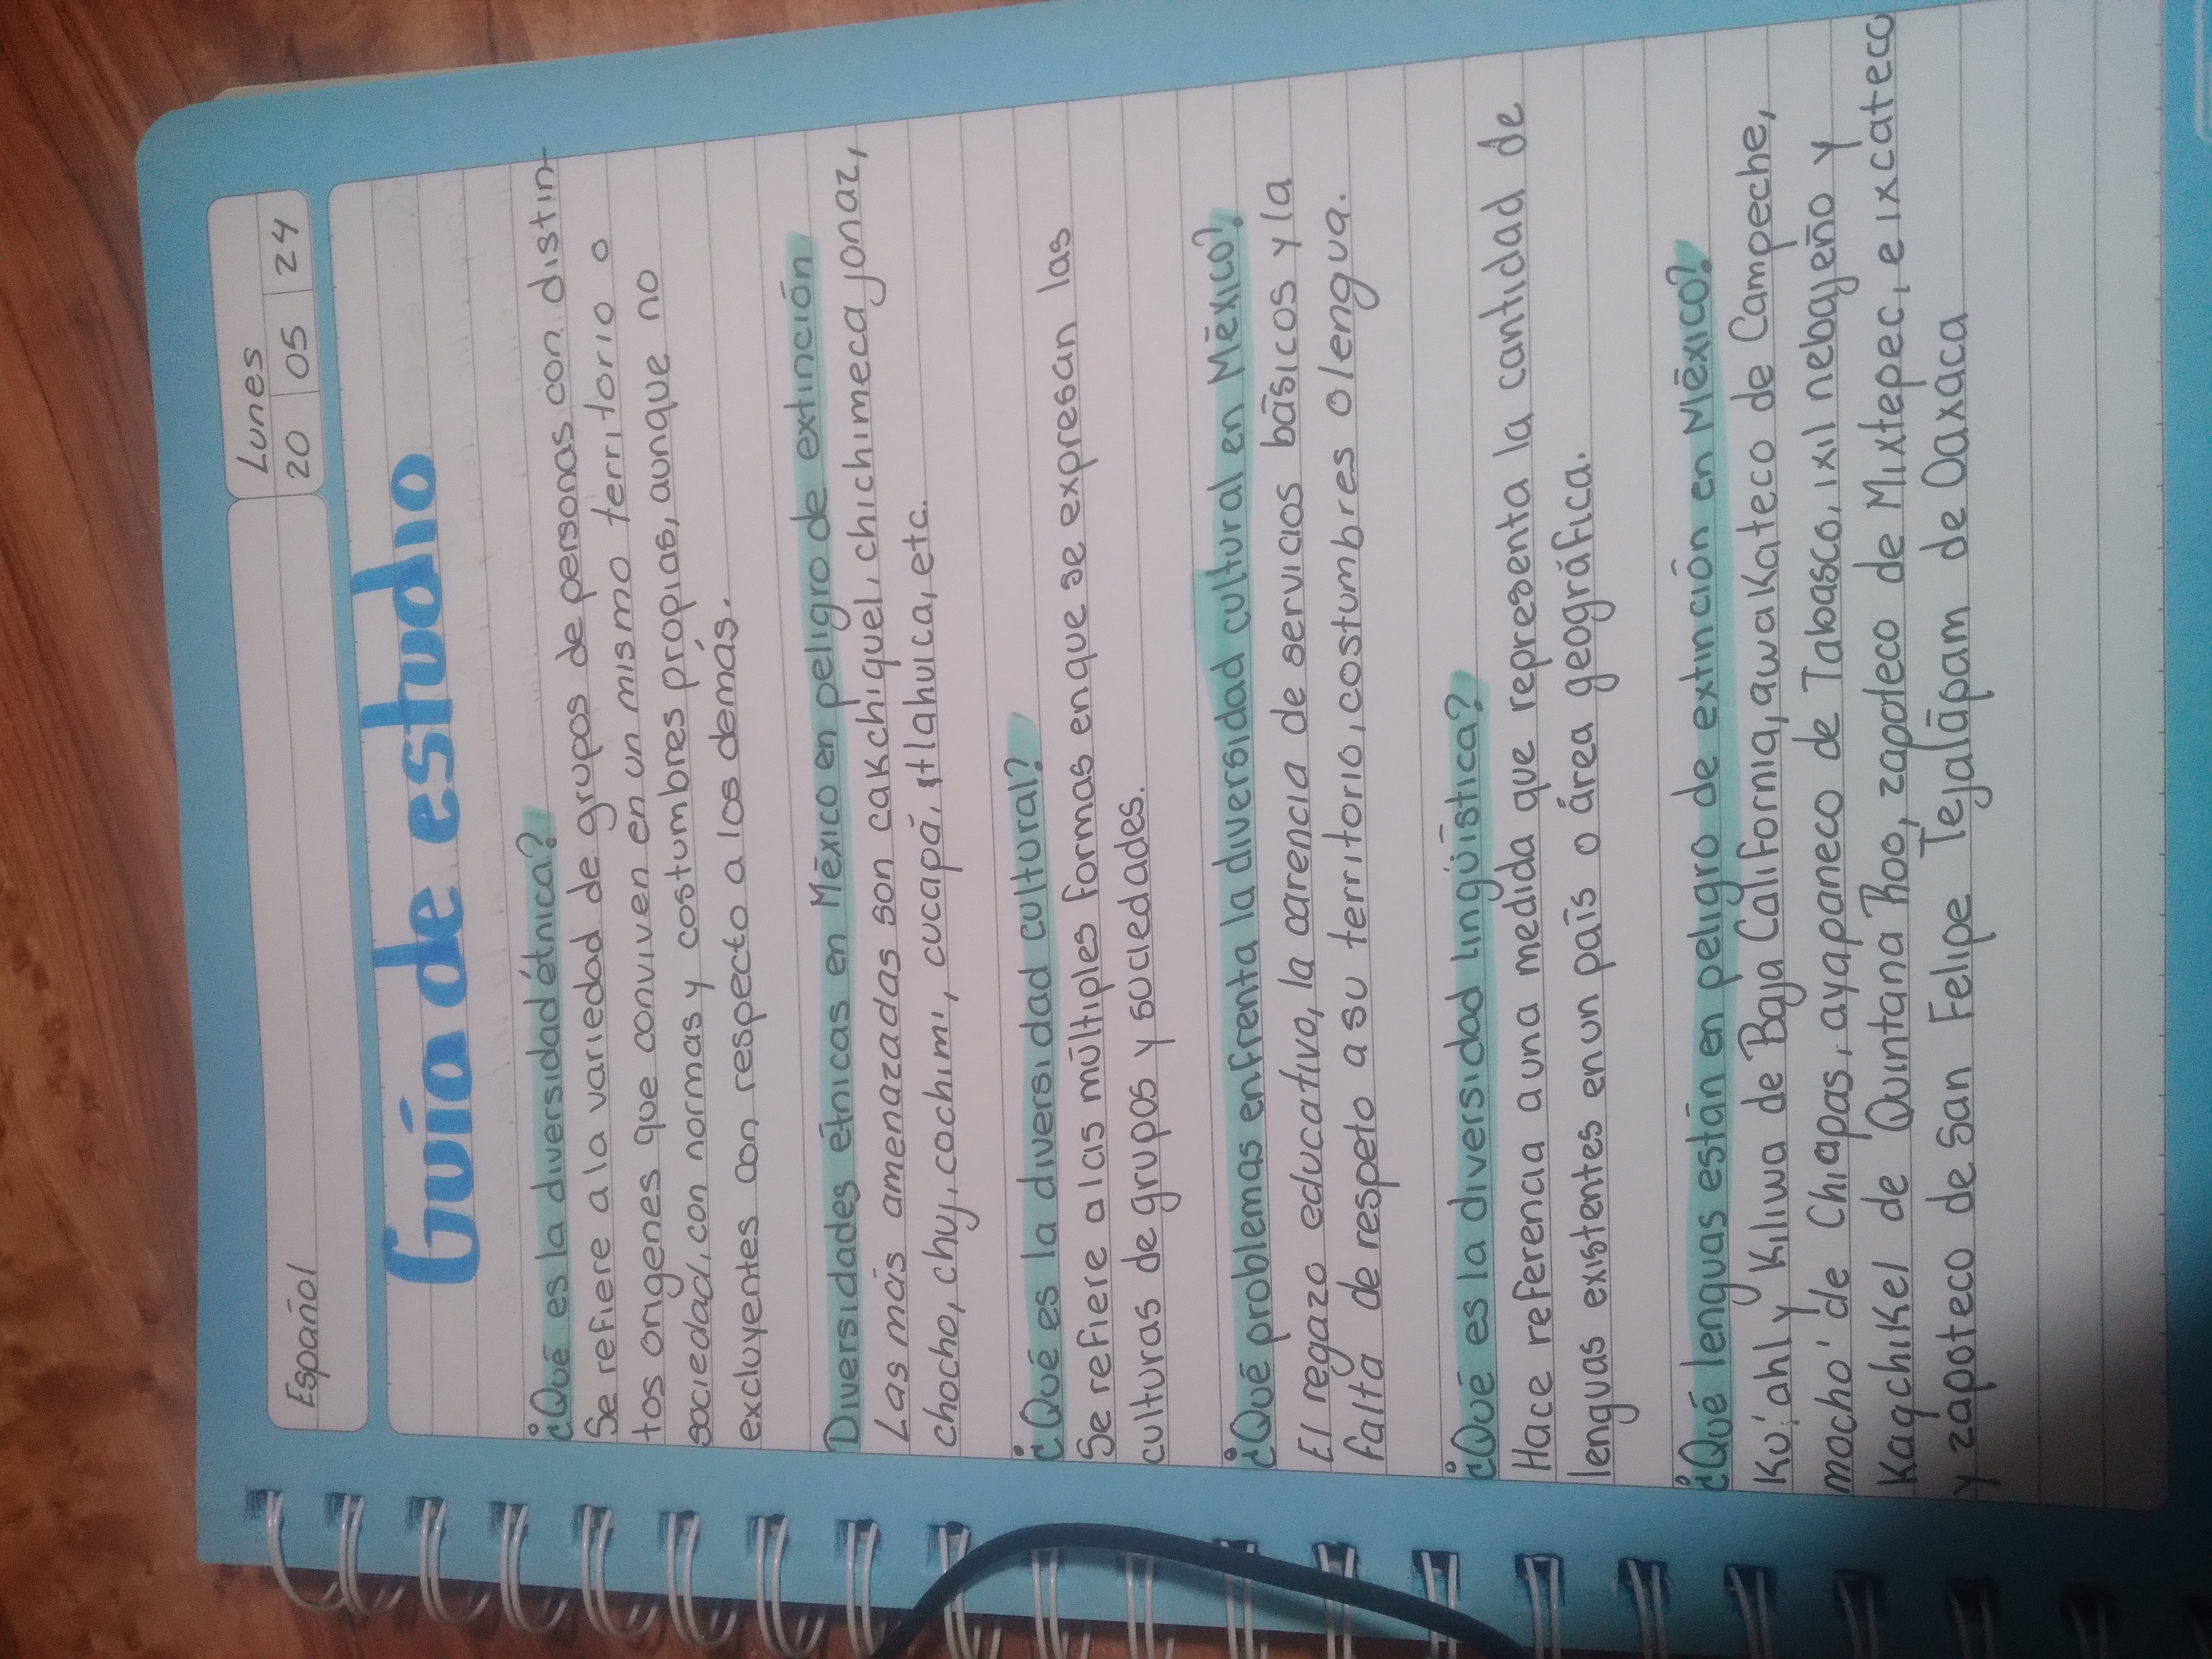 Español
Lunes
20 05 24
Guía de estudio
¿Qué es la diversidad étnica?
Se refiere a la variedad de grupos de personas con distin-
tos origenes que conviven en un mismo territorio o
sociedad, con normas y costumbres propias, aunque no
excluyentes con respecto a los demás.
Diversidades étnicas en México en peligro de extinción
Las más amenazadas son cakchiquel, chichimeca jonaz,
chocho, chuj, cochimi, cucapá, tlahuica, etc.
¿Qué es la diversidad cultural?
Se refiere a las múltiples formas en que se expresan las
culturas de grupos y sociedades.
¿Qué problemas enfrenta la diversidad cultural en México?
El regazo educativo, la carencia de servicios básicos y la
falta de respeto a su territorio, costumbres o lengua.
¿Qué es la diversidad lingüística?
Hace referencia a una medida que representa la cantidad de
lenguas existentes en un país o área geográfica.
¿Qué lenguas están en peligro de extinción en México?
Ku'ahl y Kiliwa de Baja California, awakateco de Campeche,
mocho' de Chiapas, ayapaneco de Tabasco, ixil nebajeño y
Kaqchikel de Quintana Roo, zapoteco de Mixtepec, e ixcateco
y zapoteco de San Felipe Tejalápam de Oaxaca